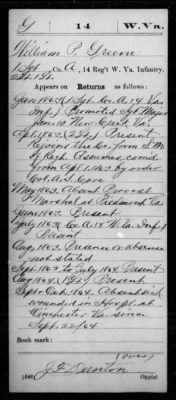 G 14 W.Va.
William P. Greene
1 Sgt., Co. A, 14 Reg't W. Va. Infantry.
2 Lt. 1 Lt.
Appears on Returns as follows:
Jany 1863 (1 Sgt. Co. A. 14 Va.
Inf.) Promoted Sgt. Major
Jany 10. New Creek, Va.
Apl. 1863 (2 Lt.) Present
from S. M.
of Regt. Assumed comd
from Apl. 1, 1863 by order
May 1863. Absent Provost
Marshal at Piedmont Va.
June 1863. Present
July 1863 (Co. A. 14 W. Va. Inf.)
Present
Aug. 1863. Presence or absence
not stated
Sept. 1863 to July 1864. Present
Aug. 1864. (1 Lt.) Present
Sept. Oct. 1864. Absent sick
wounded in Hospl. at
Winchester Va. since
Sept. 22/64
Book mark:
(over)
(546) Copyist.